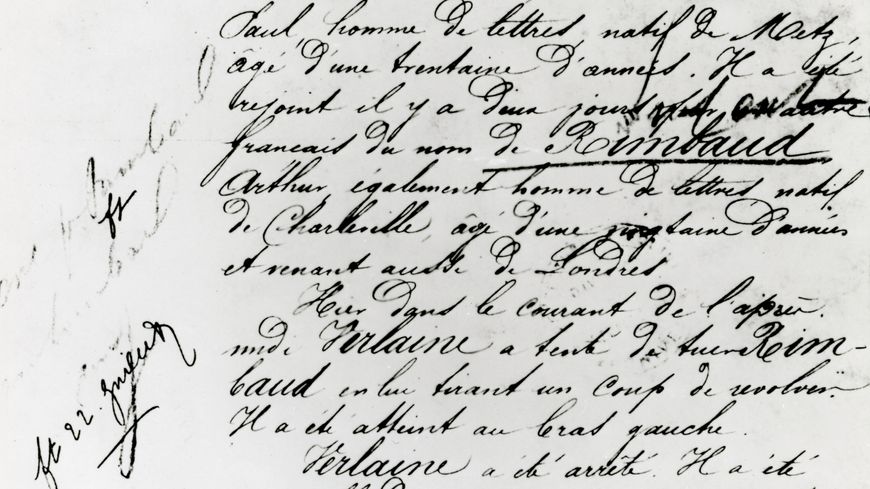 Paul, homme de lettres, natif de Metz,
âgé d'une trentaine d'années. Il a été
rejoint il y a deux jours par un autre
francais du nom de Rimbaud
Arthur, également homme de lettres natif
de Charleville, âgé d'une vingtaine d'années
et venant aussi de Londres
Hier dans le courant de l'après-
midi Verlaine a tenté de tuer Rim-
baud en lui tirant un coup de revolver.
Il a été atteint au bras gauche.
Verlaine a été arrêté. Il a été
ft
ft 22